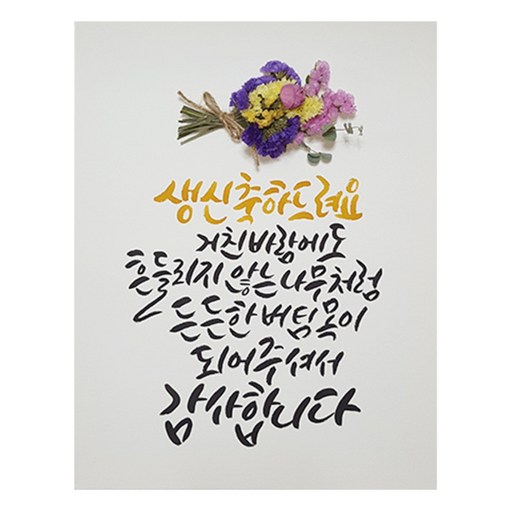 생신축하드려요
거친바람에도
흔들리지 않는 나무처럼
든든한 버팀목이
되어주셔서
감사합니다